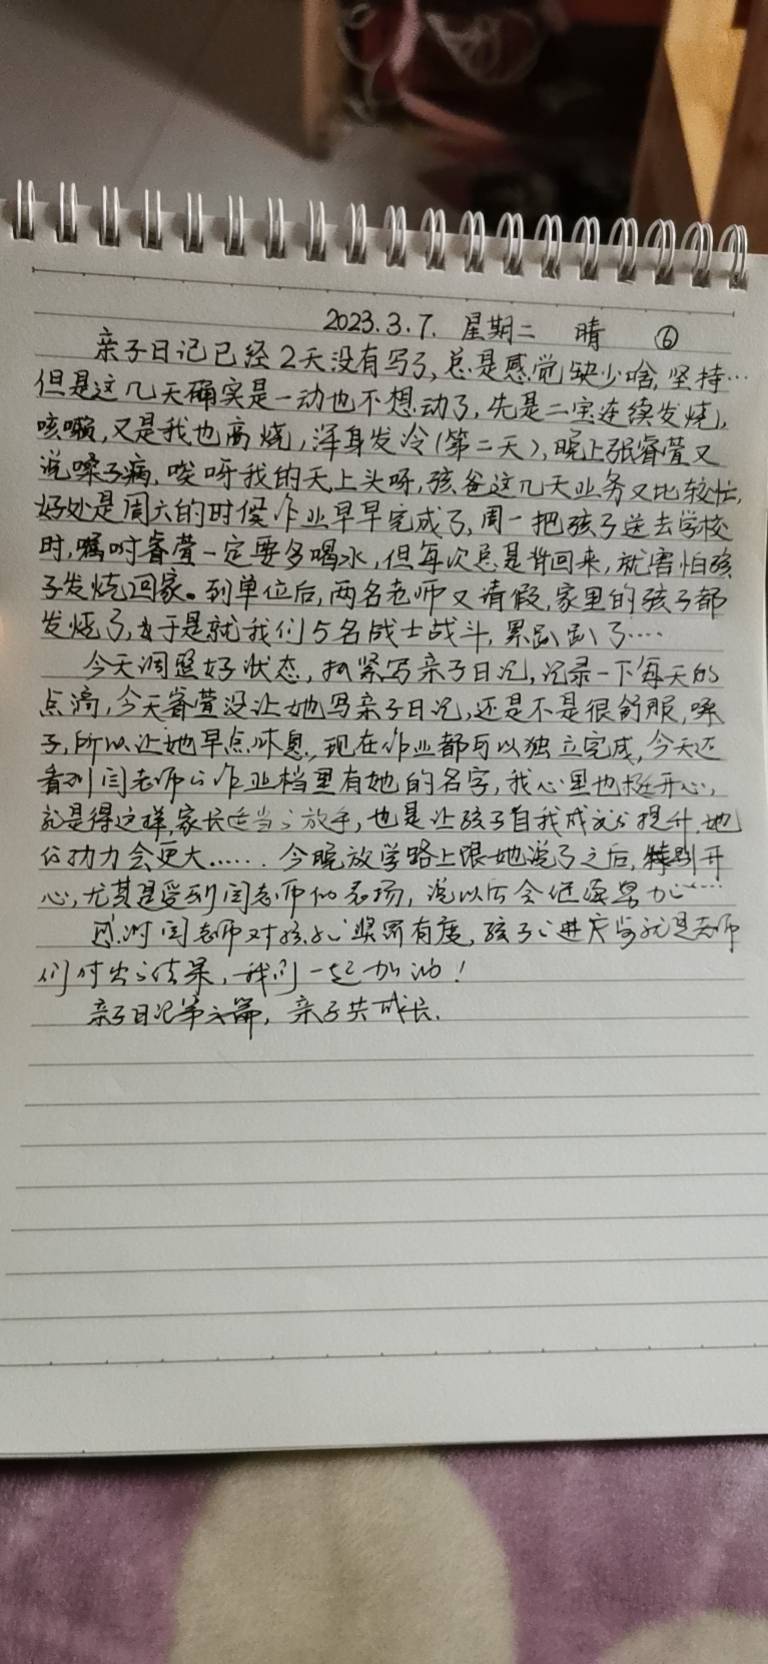 2023.3.7. 星期二 晴 ⑥
亲子日记已经2天没有写了,总是感觉缺少啥,坚持…
但是这几天确实是一动也不想动了,先是二宝连续发烧,
咳嗽,又是我也高烧,浑身发冷(第二天),晚上张睿萱又
说嗓子痛,唉呀我的天上头呀,孩爸这几天业务又比较忙,
好处是周六的时候作业早早完成了,周一把孩子送去学校
时,嘱咐睿萱一定要多喝水,但每次总是背回来,就害怕孩
子发烧回家。到单位后,两名老师又请假,家里的孩子都
发烧了,于是就我们5名战士战斗,累趴趴了….
今天调整好状态,抓紧写亲子日记,记录一下每天的
点滴,今天睿萱没让她写亲子日记,还是不是很舒服,嗓
子,所以让她早点休息,现在作业都可以独立完成,今天还
看到闫老师的作业档里有她的名字,我心里也挺开心,
就是得这样,家长适当的放手,也是让孩子自我成长的提升,她
的动力会更大…… 今晚放学路上跟她说了之后,特别开
心,尤其是受到闫老师的表扬,说以后会继续努力……
同时闫老师对孩子的奖罚有度,孩子的进步就是老师
们付出的结果,我们一起加油!
亲子日记第六篇,亲子共成长.